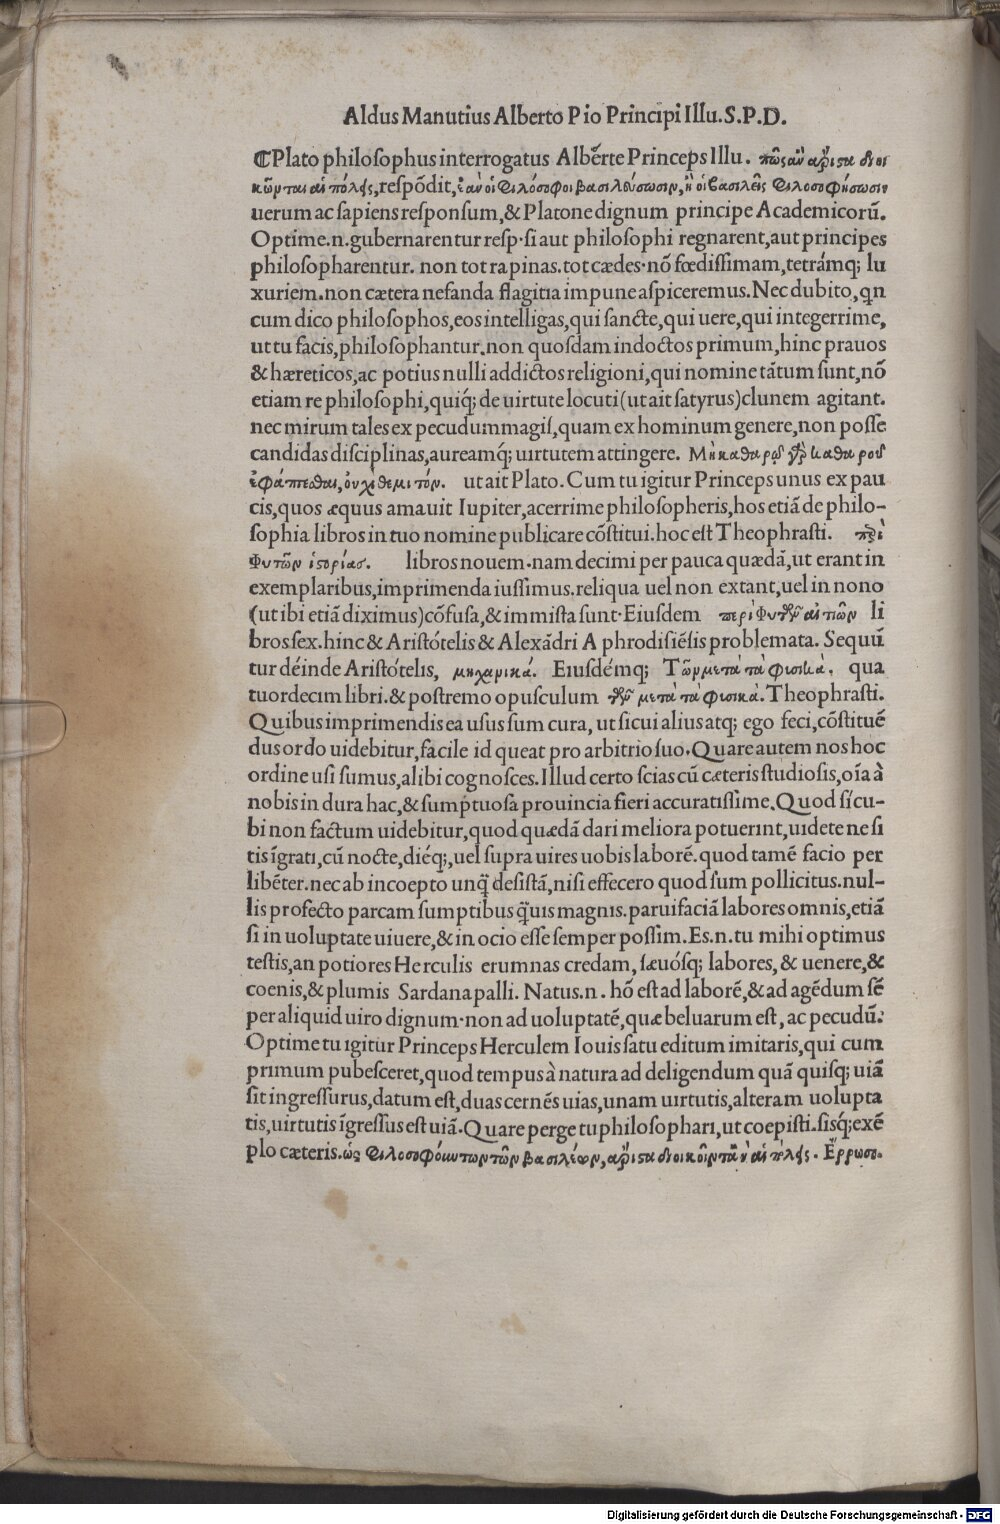 Aldus Manutius Alberto Pio Principi Illu. S.P.D.
¶Plato philosophus interrogatus Albérte Princeps Illu. πῶς ἂν ἄριστα διοι
κῶνται αἱ πόλεις, respõdit, ἐὰν οἱ φιλόσοφοι βασιλεύσωσιν, ἢ οἱ βασιλεῖς φιλοσοφήσωσιν
uerum ac sapiens responsum, & Platone dignum principe Academicorũ.
Optime.n.gubernarentur resp.si aut philosophi regnarent, aut principes
philosopharentur. non tot rapinas.tot cædes.nõ fœdissimam, tetrámq; lu
xuriem.non cætera nefanda flagitia impune aspiceremus. Nec dubito, qn
cum dico philosophos, eos intelligas, qui sancte, qui uere, qui integerrime,
ut tu facis, philosophantur.non quosdam indoctos primum, hinc prauos
& hæreticos, ac potius nulli addictos religioni, qui nomine tãtum sunt, nõ
etiam re philosophi, quiq́; de uirtute locuti (ut ait satyrus) clunem agitant.
nec mirum tales ex pecudum magis, quam ex hominum genere, non posse
candidas disciplinas, aureamq́; uirtutem attingere. Μὴ καθαροῖς γὰρ καθαροῦ
ἐφάπτεσθαι, οὐχὶ θεμιτόν. ut ait Plato. Cum tu igitur Princeps unus ex pau
cis, quos æquus amauit Iupiter, acerrime philosopheris, hos etiã de philo-
sophia libros in tuo nomine publicare cõstitui. hoc est Theophrasti. περὶ
φυτῶν ἱστορίας. libros nouem.nam decimi per pauca quædã, ut erant in
exemplaribus, imprimenda iussimus.reliqua uel non extant, uel in nono
(ut ibi etiã diximus) cõfusa, & immista sunt. Eiusdem περὶ φυτῶν αἰτιῶν li
bros sex. hinc & Aristótelis & Alexãdri Aphrodisiẽsis problemata. Sequũ
tur déinde Aristótelis, μηχανικά. Eiusdémq; Τῶν μετὰ τὰ φυσικὰ. qua
tuordecim libri. & postremo opusculum τῶν μετὰ τὰ φυσικὰ. Theophrasti.
Quibus imprimendis ea usus sum cura, ut sicui alius atq; ego feci, cõstituẽ
dus ordo uidebitur, fácile id queat pro arbitrio suo. Quare autem nos hoc
ordine usi sumus, alibi cognosces. Illud certo scias cũ cæteris studiosis, oĩa à
nobis in dura hac, & sumptuosa prouincia fieri accuratissime. Quod sícu-
bi non factum uidebitur, quod quædã dari meliora potuerint, uidete ne si
tis ĩgrati, cũ nocte, diéq;, uel supra uires uobis laborẽ. quod tamẽ facio per
libẽter. nec ab incoepto unq̃ desistã, nisi effecero quod sum pollicitus. nul-
lis profecto parcam sumptibus q̃uis magnis. paruifaciã labores omnis, etiã
si in uoluptate uiuere, & in ocio esse semper possim. Es.n.tu mihi optimus
testis, an potiores Herculis erumnas credam, sæuósq; labores, & uenere, &
coenis, & plumis Sardanapalli. Natus.n. hõ est ad laborẽ, & ad agẽdum sẽ
per aliquid uiro dignum.non ad uoluptatẽ, quæ beluarum est, ac pecudũ.
Optime tu igitur Princeps Herculem Iouis satu editum imitaris, qui cum
primum pubesceret, quod tempus à natura ad deligendum quã quisq; uiã
sit ingressurus, datum est, duas cernẽs uias, unam uirtutis, alteram uolupta
tis, uirtutis ĩgressus est uiã. Quare perge tu philosophari, ut coepisti. sisq́; exẽ
plo cæteris. ὡς φιλοσοφούντων τῶν βασιλέων, ἄριστα διοικοῖντ' ἂν αἱ πόλεις. Ἔρρωσο.
Digitalisierung gefördert durch die Deutsche Forschungsgemeinschaft - DFG